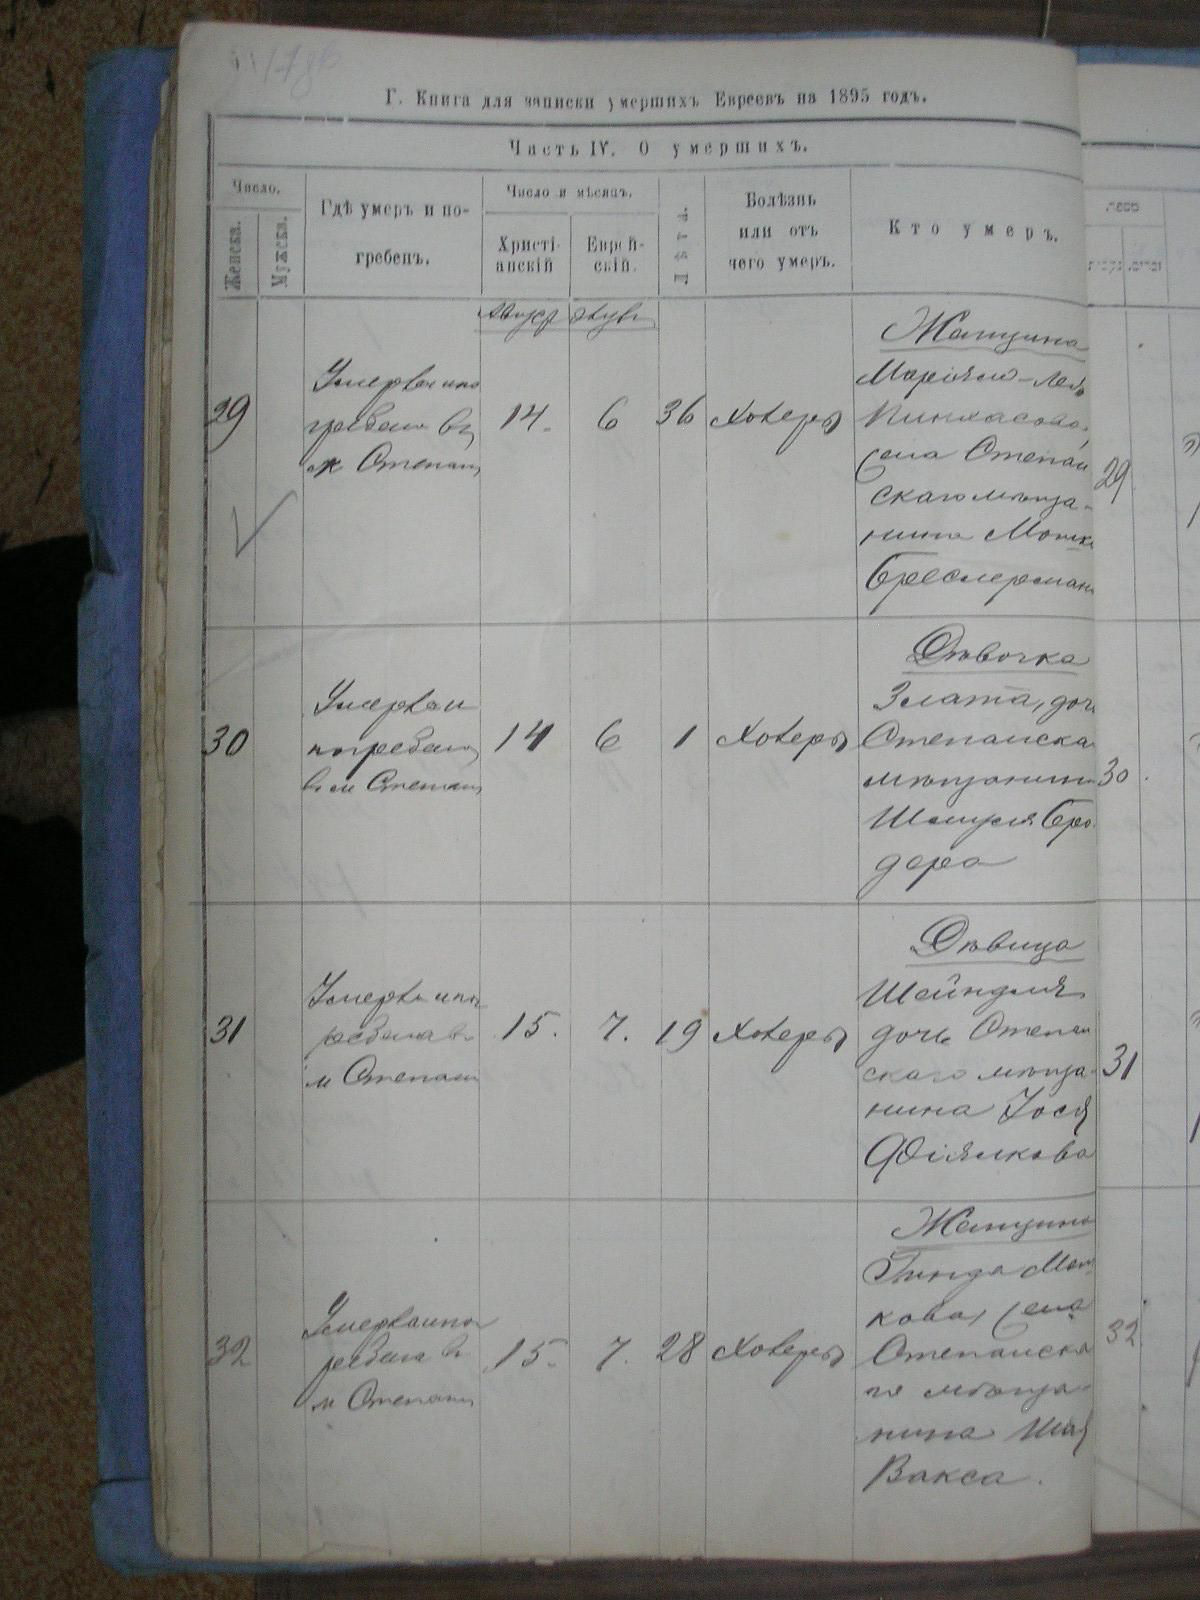 Г. Книга для записки умершихъ Евреевъ на 1895 годъ.
Часть IV. О умершихъ.
Число.
Женска.
Мужска.
Гдѣ умеръ и по-
гребенъ.
Число и мѣсяцъ.
Христі-
анскій
Еврей-
скій.
Лѣта.
Болѣзнь
или отъ
чего умеръ.
Кто умеръ.
29
Умерла и по
гребена въ
м Степани
14.
6
36
Холеры
Женщина
Маріямъ-Лея
Пинхасова,
жена Степан
скаго мѣща-
нина Мошка
Бреслермана
29
30
Умерла и
погребена
въ м Степани
14
6
1
Холеры
Дѣвочка
Злата, дочь
Степанска
мѣщанина
Шмуля Бро
дера
30
31
Умерла и по
гребена въ
м Степани
15.
7.
19
Холеры
Дѣвица
Шейндля
дочь Степан
скаго мѣща-
нина Іося
31
32
Умерла и по
гребена въ
м Степани
15.
7.
28
Холеры
Женщина
кова, жена
Степанска
го мѣща-
нина Шая
Вакса.
32